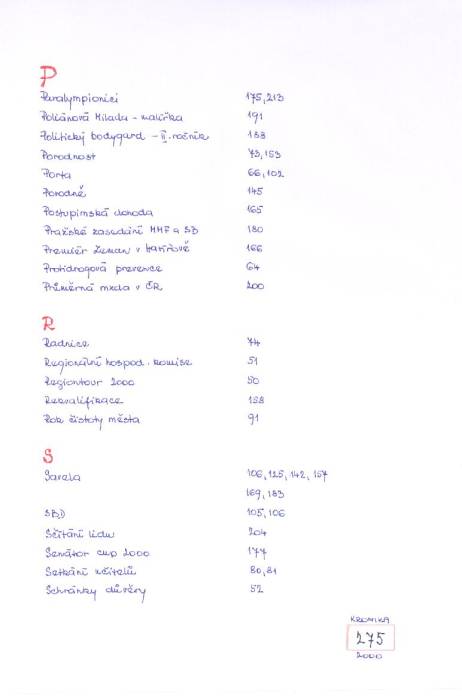 P
Paralympionici 175, 213
Poliánová Milada - malířka 191
Politický bodygard - II. ročník 188
Porodnost 73, 153
Porta 66, 102
Porodné 145
Postupimská dohoda 165
Pražské zasedání MMF a SB 180
Premiér Zeman v 166
Protidrogová prevence 64
Průměrná mzda v ČR 200
R
Radnice 74
Regionální hospod. komise 51
Regiontour 2000 50
Rekvalifikace 158
Rok čistoty města 91
S
Sareza 106, 125, 142, 157
169, 183
SBD 105, 106
Sčítání lidu 204
Senátor cup 2000 177
Setkání učitelů 80, 81
Schránky důvěry 52
KRONIKA
275
2000